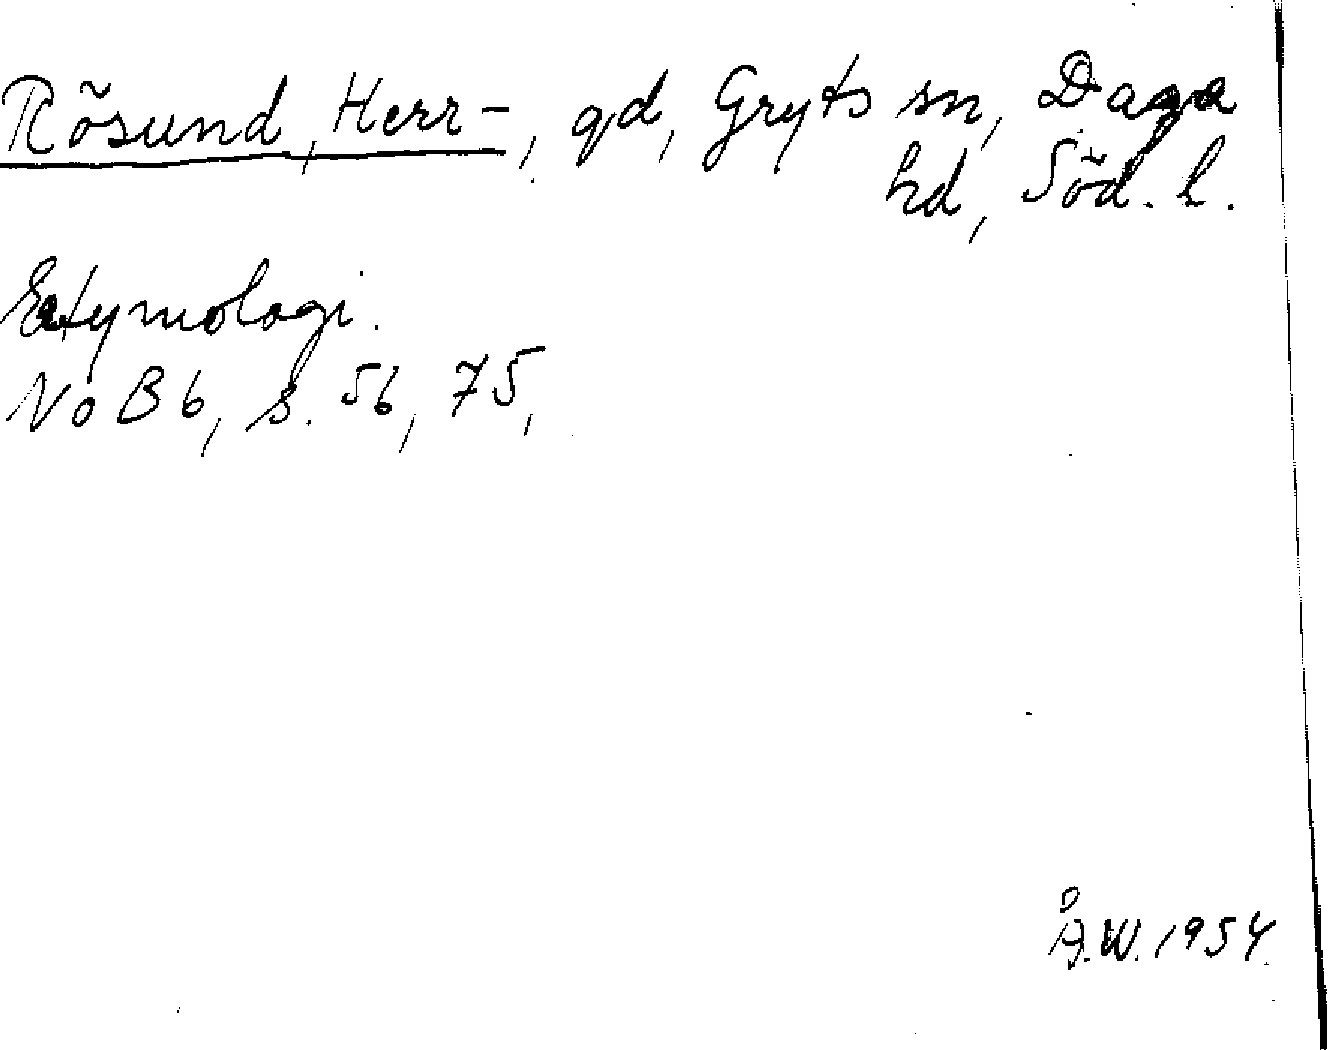 Rösund, Herr-, gd, Gryts sn, Daga
hd, Söd. l.
Etymologi.
NoB 6, s. 56, 75,
Å.W. 1954.